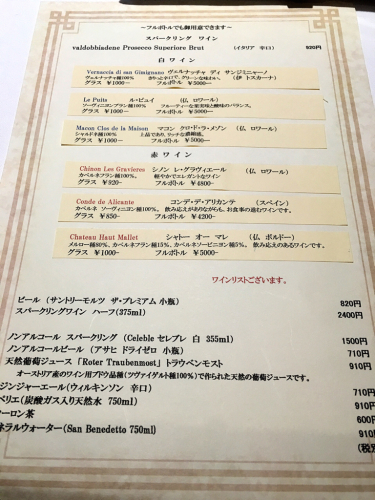 ～フルボトルでも御用意できます～
スパークリング ワイン
valdobbiadene Prosecco Superiore Brut (イタリア 辛口) 920円
白 ワイン
Vernaccia di san Gimignano ヴェルナッチャ ディ サンジミニャーノ
ヴェルナッチャ種100％。 きりっと辛口で、クリーンな味わい。 (伊 トスカーナ)
グラス ￥1000― フルボトル ￥5000―
Le Puits ル・ピュイ (仏 ロワール)
ソーヴィニヨンブラン種100％。 フルーティーな果実味と酸味のバランス。
グラス ￥1000― フルボトル ￥5000―
Macon Clos de la Maison マコン クロ・ド・ラ・メゾン (仏 ロワール)
シャルドネ種100％。 上品であり、リッチな濃縮感。
グラス ￥1000― フルボトル ￥5000―
赤 ワイン
Chinon Les Gravieres シノン レ・グラヴィエール (仏 ロワール)
カベルネフラン種100％。 軽やかでエレガントなワイン
グラス ￥920― フルボトル ￥4800―
Conde de Alicante コンデ・デ・アリカンテ (スペイン)
カベルネ ソーヴィニヨン種100％。 飲み応えがありながらも、お食事の進むワインです。
グラス ￥850― フルボトル ￥4200―
Chateau Haut Mallet シャトー オー マレ (仏 ボルドー)
メルロー種80％、カベルネフラン種15％、カベルネソービニヨン種5％。 飲み応えのあるワインです。
グラス ￥1000― フルボトル ￥5000―
ワインリストございます。
ビール (サントリーモルツ ザ・プレミアム 小瓶) 820円
スパークリングワイン ハーフ(375ml) 2400円
ノンアルコール スパークリング (Celeble セレブレ 白 355ml) 1500円
ノンアルコールビール (アサヒ ドライゼロ 小瓶) 710円
天然葡萄ジュース「Roter Traubenmost」トラウベンモスト 910円
オーストリア産のワイン用ブドウ品種(ツヴァイゲルト種100％)で作られた天然の葡萄ジュースです。
ジンジャーエール(ウィルキンソン 辛口) 710円
ペリエ(炭酸ガス入り天然水 750ml) 910円
ーロン茶 600円
ネラルウォーター(San Benedetto 750ml) 910
(税別